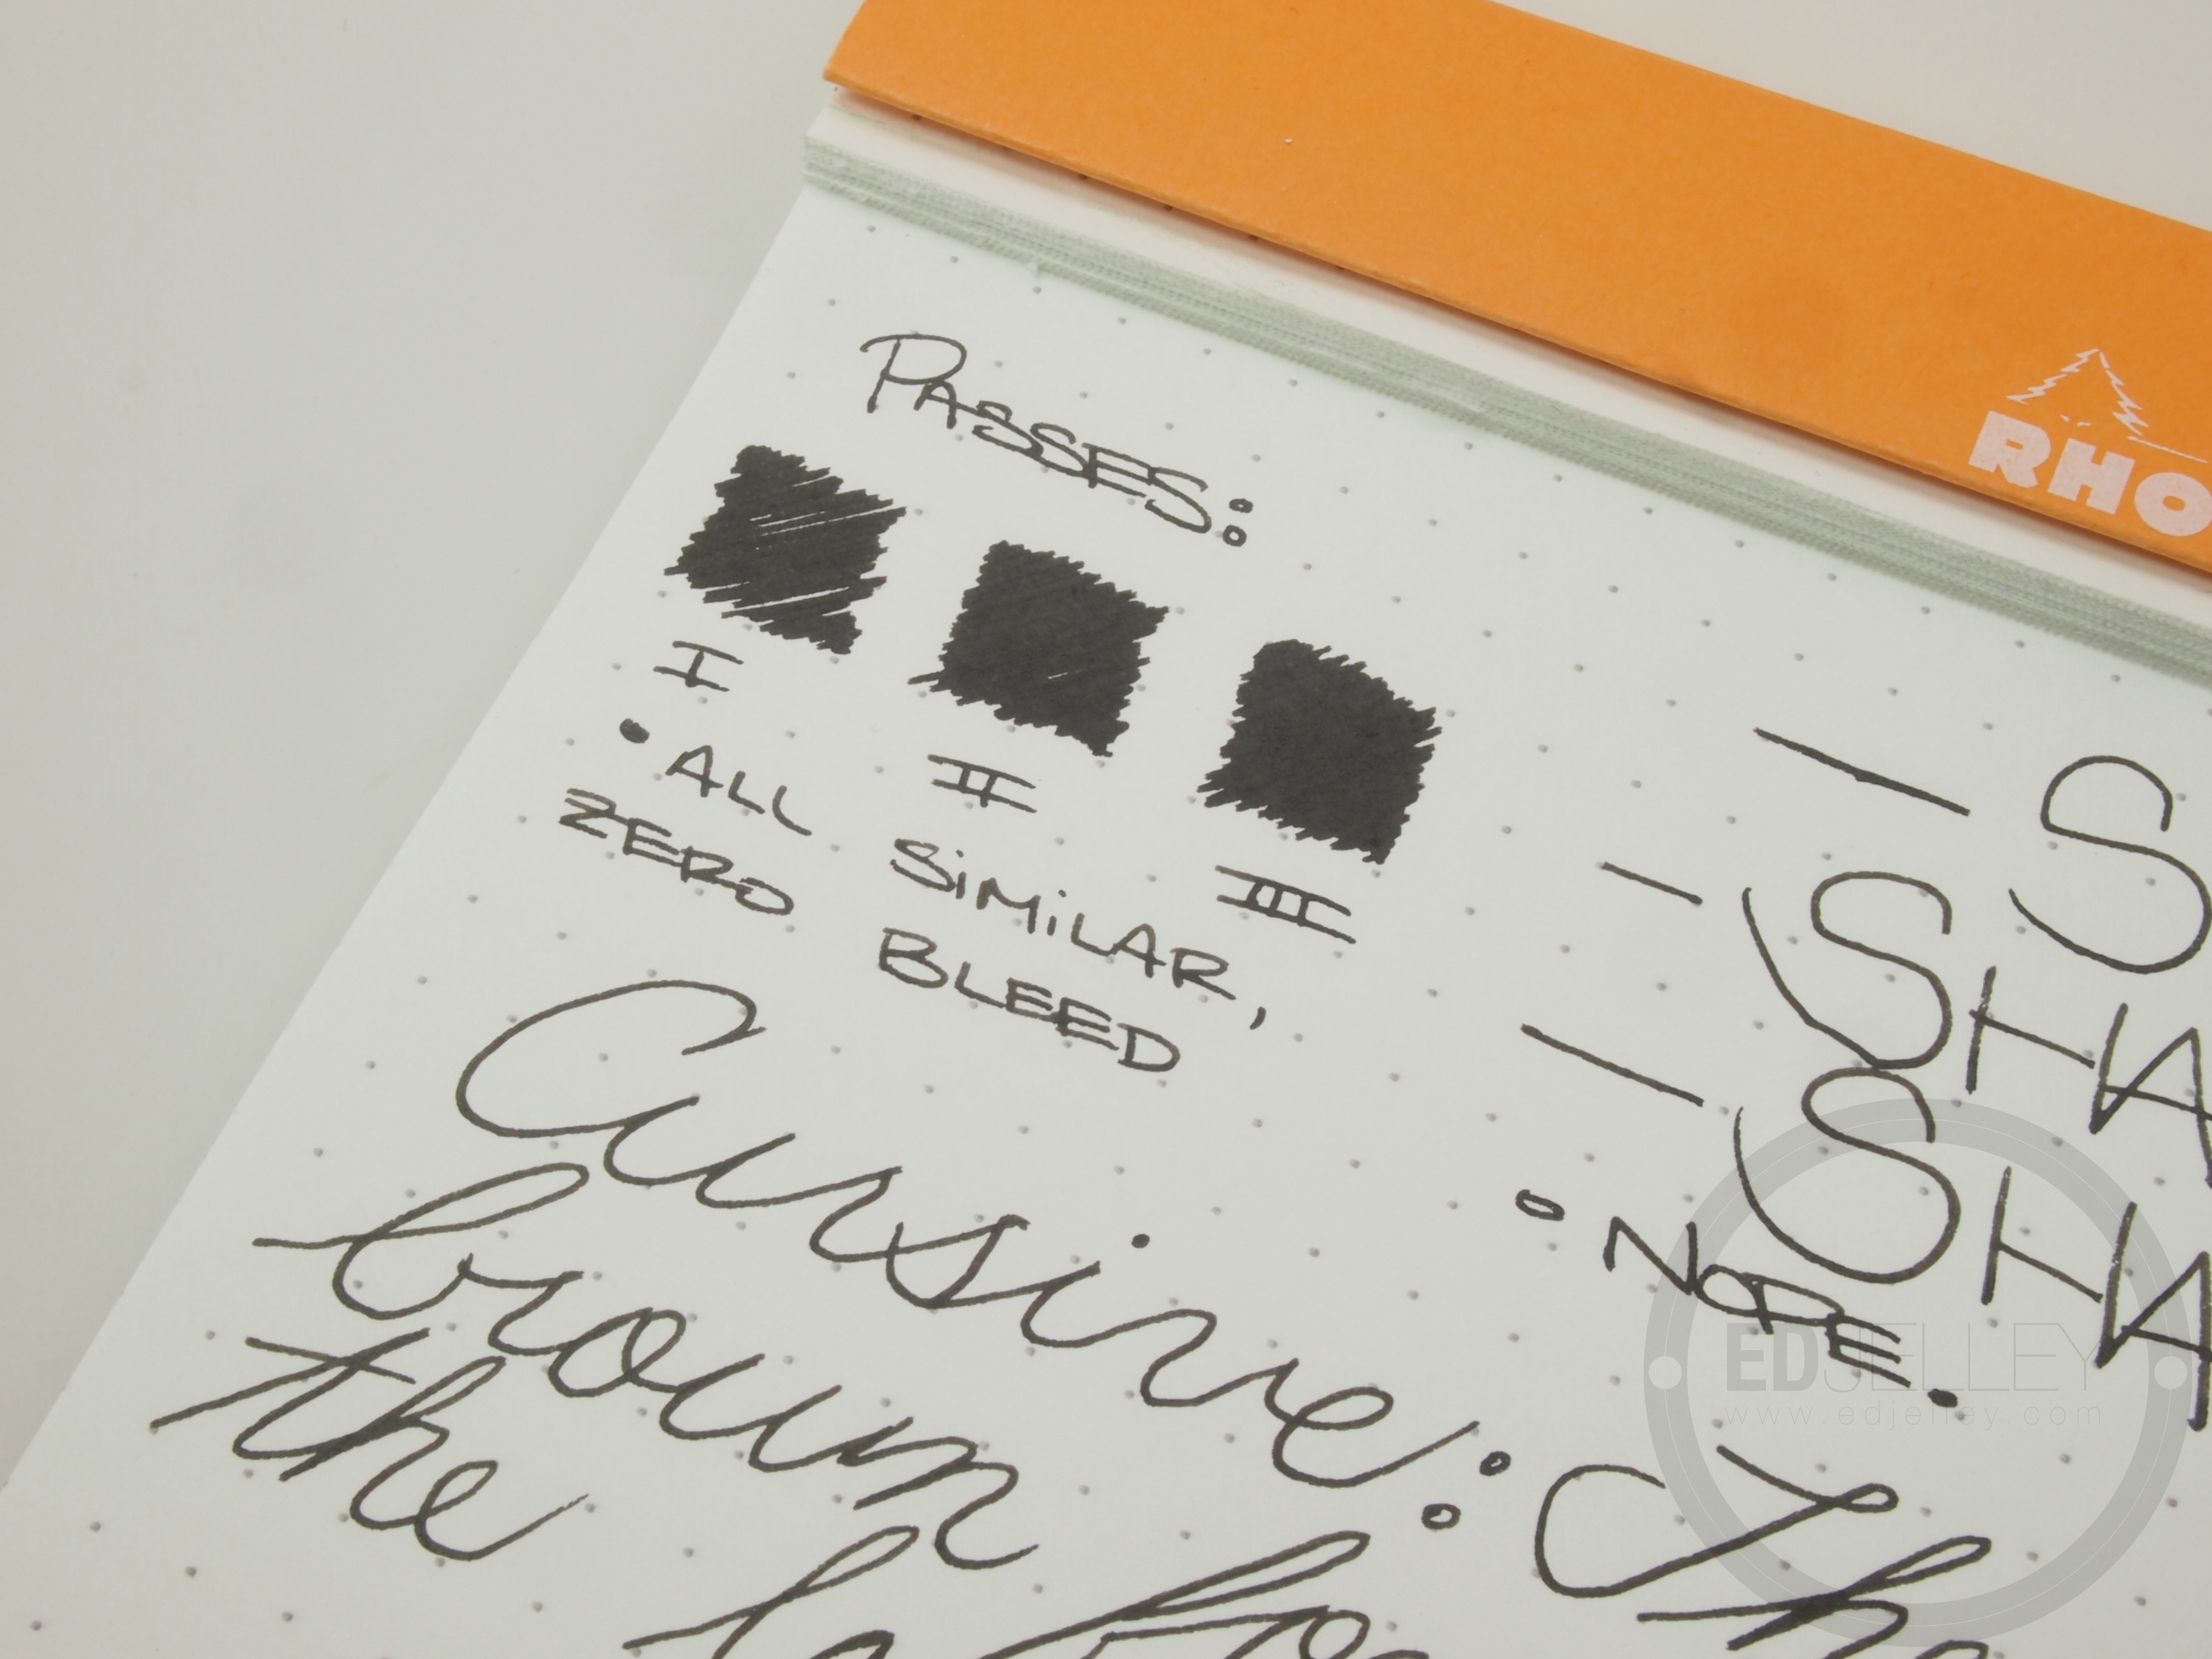 RHO
PASSES:
I II III
• ALL SIMILAR,
ZERO BLEED
— S
— SHA
— SHA
• NOPE.
Cursive: The
brown fo
the la
EDJELLEY
www.edjelley.com